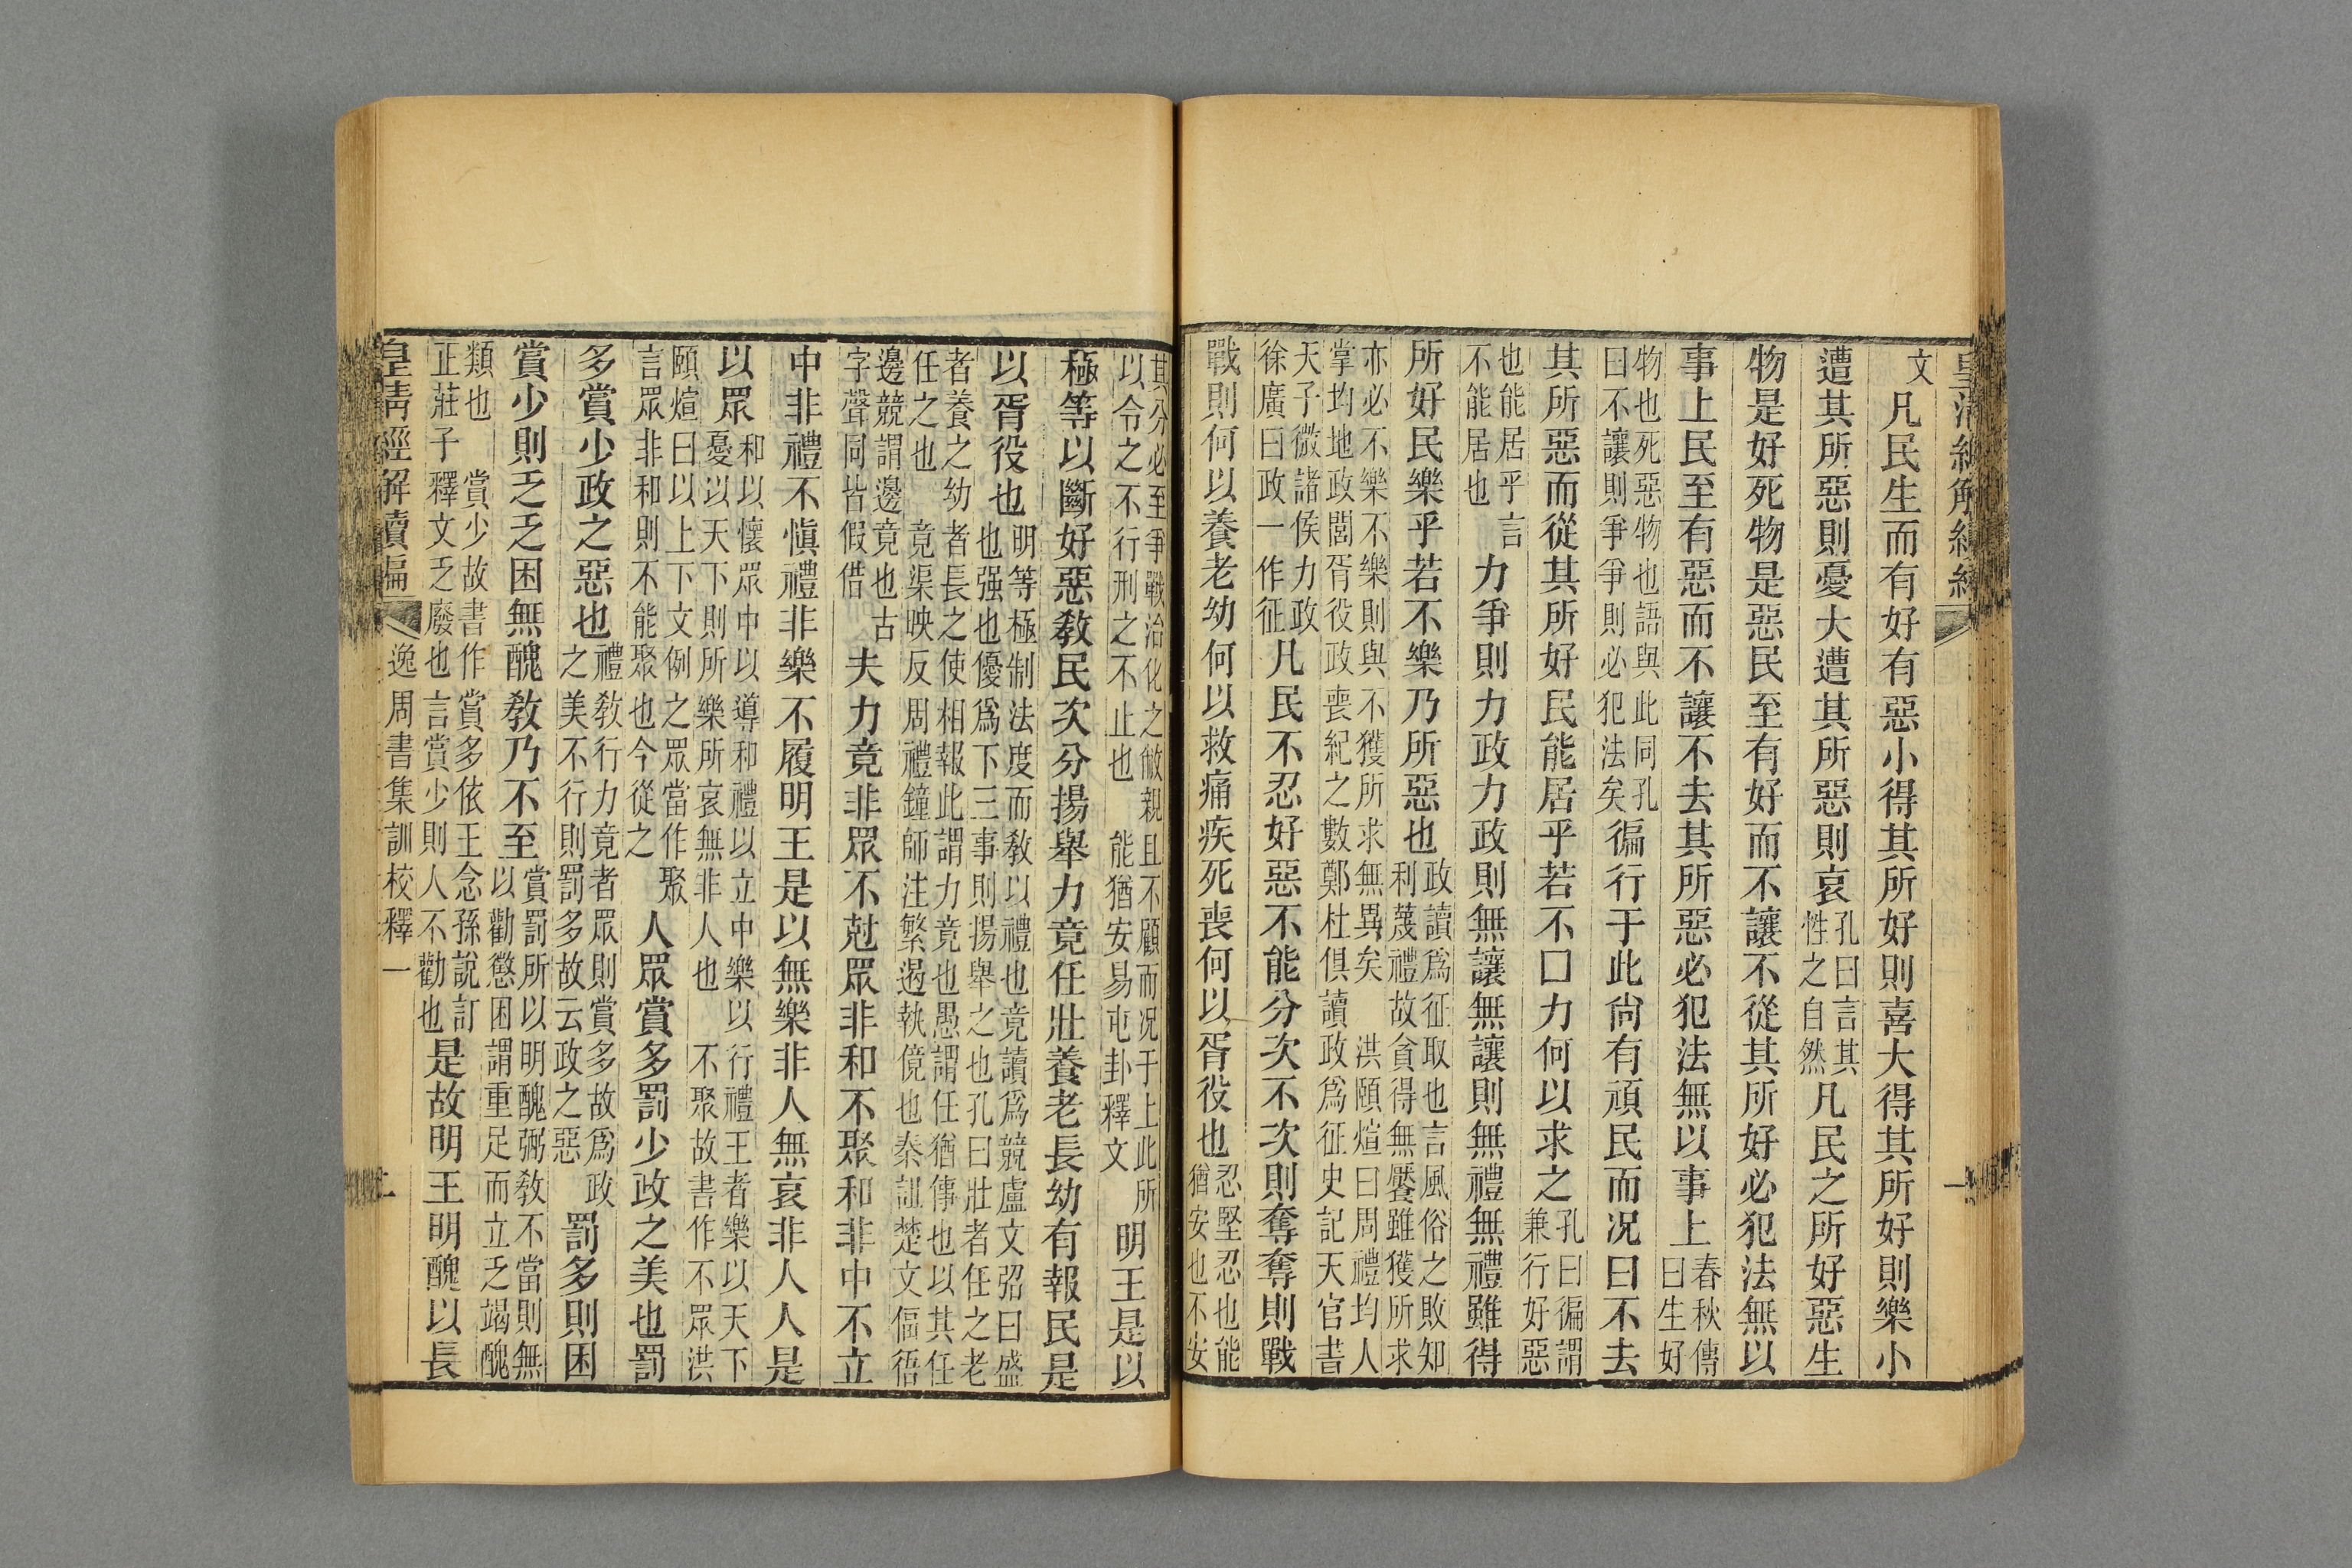 皇清經解續編
一
文 凡民生而有好有惡小得其所好則喜大得其所好則樂小
遭其所惡則憂大遭其所惡則哀孔曰言其性之自然凡民之所好惡生
物是好死物是惡民至有好而不讓不從其所好必犯法無以
事上民至有惡而不讓不去其所惡必犯法無以事上春秋傳曰生好
物也死惡物也語與此同孔曰不讓則爭爭則必犯法矣徧行于此尙有頑民而况曰不去
其所惡而從其所好民能居乎若不口力何以求之孔曰徧謂兼行好惡
也能居乎言不能居也力爭則力政力政則無讓無讓則無禮無禮雖得
所好民樂乎若不樂乃所惡也政讀爲征取也言風俗之敗知利蔑禮故貪得無饜雖獲所求
亦必不樂不樂則與不獲所求無異矣 洪頤煊曰周禮均人掌均地政閭胥役政喪紀之數鄭杜俱讀政爲征史記天官書
天子微諸侯力政徐廣曰政一作征凡民不忍好惡不能分次不次則奪奪則戰
戰則何以養老幼何以救痛疾死喪何以胥役也忍堅忍也能猶安也不安
其分必至爭戰治化之敝親且不顧而况于上此所以令之不行刑之不止也 能猶安易屯卦釋文明王是以
極等以斷好惡敎民次分揚舉力竟任壯養老長幼有報民是
以胥役也明等極制法度而敎以禮也竟讀爲競盧文弨曰盛也强也優爲下三事則揚舉之也孔曰壯者任之老
者養之幼者長之使相報此謂力竟也愚謂任猶傳也以其任任之也 竟渠映反周禮鐘師注繁遏執傹也秦詛楚文偪䛠
邊競謂邊竟也古字聲同皆假借夫力竟非眾不尅眾非和不聚和非中不立
中非禮不愼禮非樂不履明王是以無樂非人無哀非人人是
以眾和以懷眾中以導和禮以立中樂以行禮王者樂以天下憂以天下則所樂所哀無非人也 不聚故書作不眾洪
頤煊曰以上下文例之眾當作聚言眾非和則不能聚也今從之人眾賞多罰少政之美也罰
多賞少政之惡也禮敎行力竟者眾則賞多故爲政之美不行則罰多故云政之惡罰多則困
賞少則乏乏困無醜敎乃不至賞罰所以明醜弼敎不當則無以勸懲困謂重足而立乏竭醜
類也 賞少故書作賞多依王念孫說訂正莊子釋文乏廢也言賞少則人不勸也是故明王明醜以長
皇淸經解續編
逸周書集訓校釋一
二